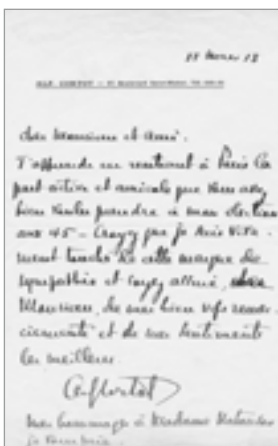 cher Monsieur et Ami.
J'apprends en rentrant à Paris la
part active et amicale que vous avez
bien voulu prendre à mon élection
aux 45 - Croyez que je suis vive-
ment touché de cette marque de
sympathie et soyez assuré, cher
Monsieur, de mes bien vifs remer-
ciements et de mes sentiments
les meilleurs
Mes hommages à Madame
je vous prie.